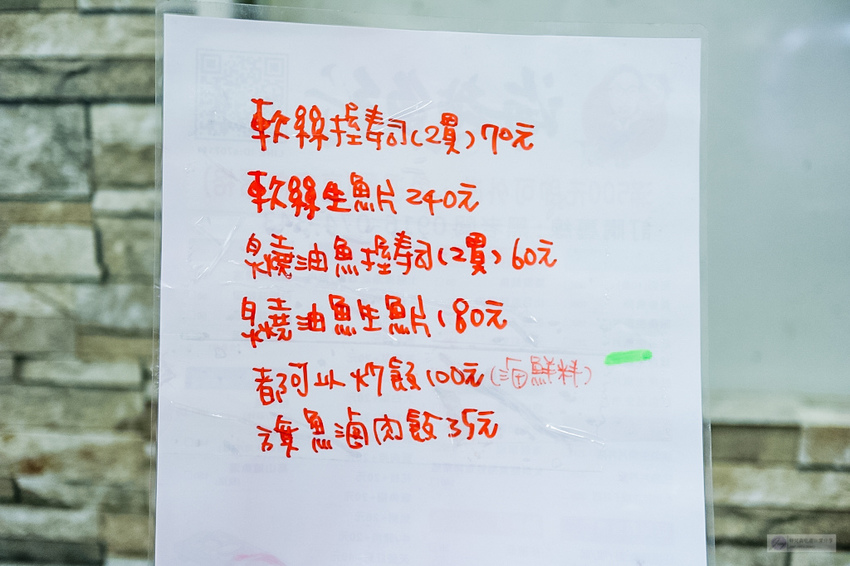 軟絲握壽司(2貫)70元
軟絲生魚片240元
炙燒油魚握壽司(2貫)60元
炙燒油魚生魚片180元
都可以炒飯100元(海鮮料)
旗魚滷肉飯35元